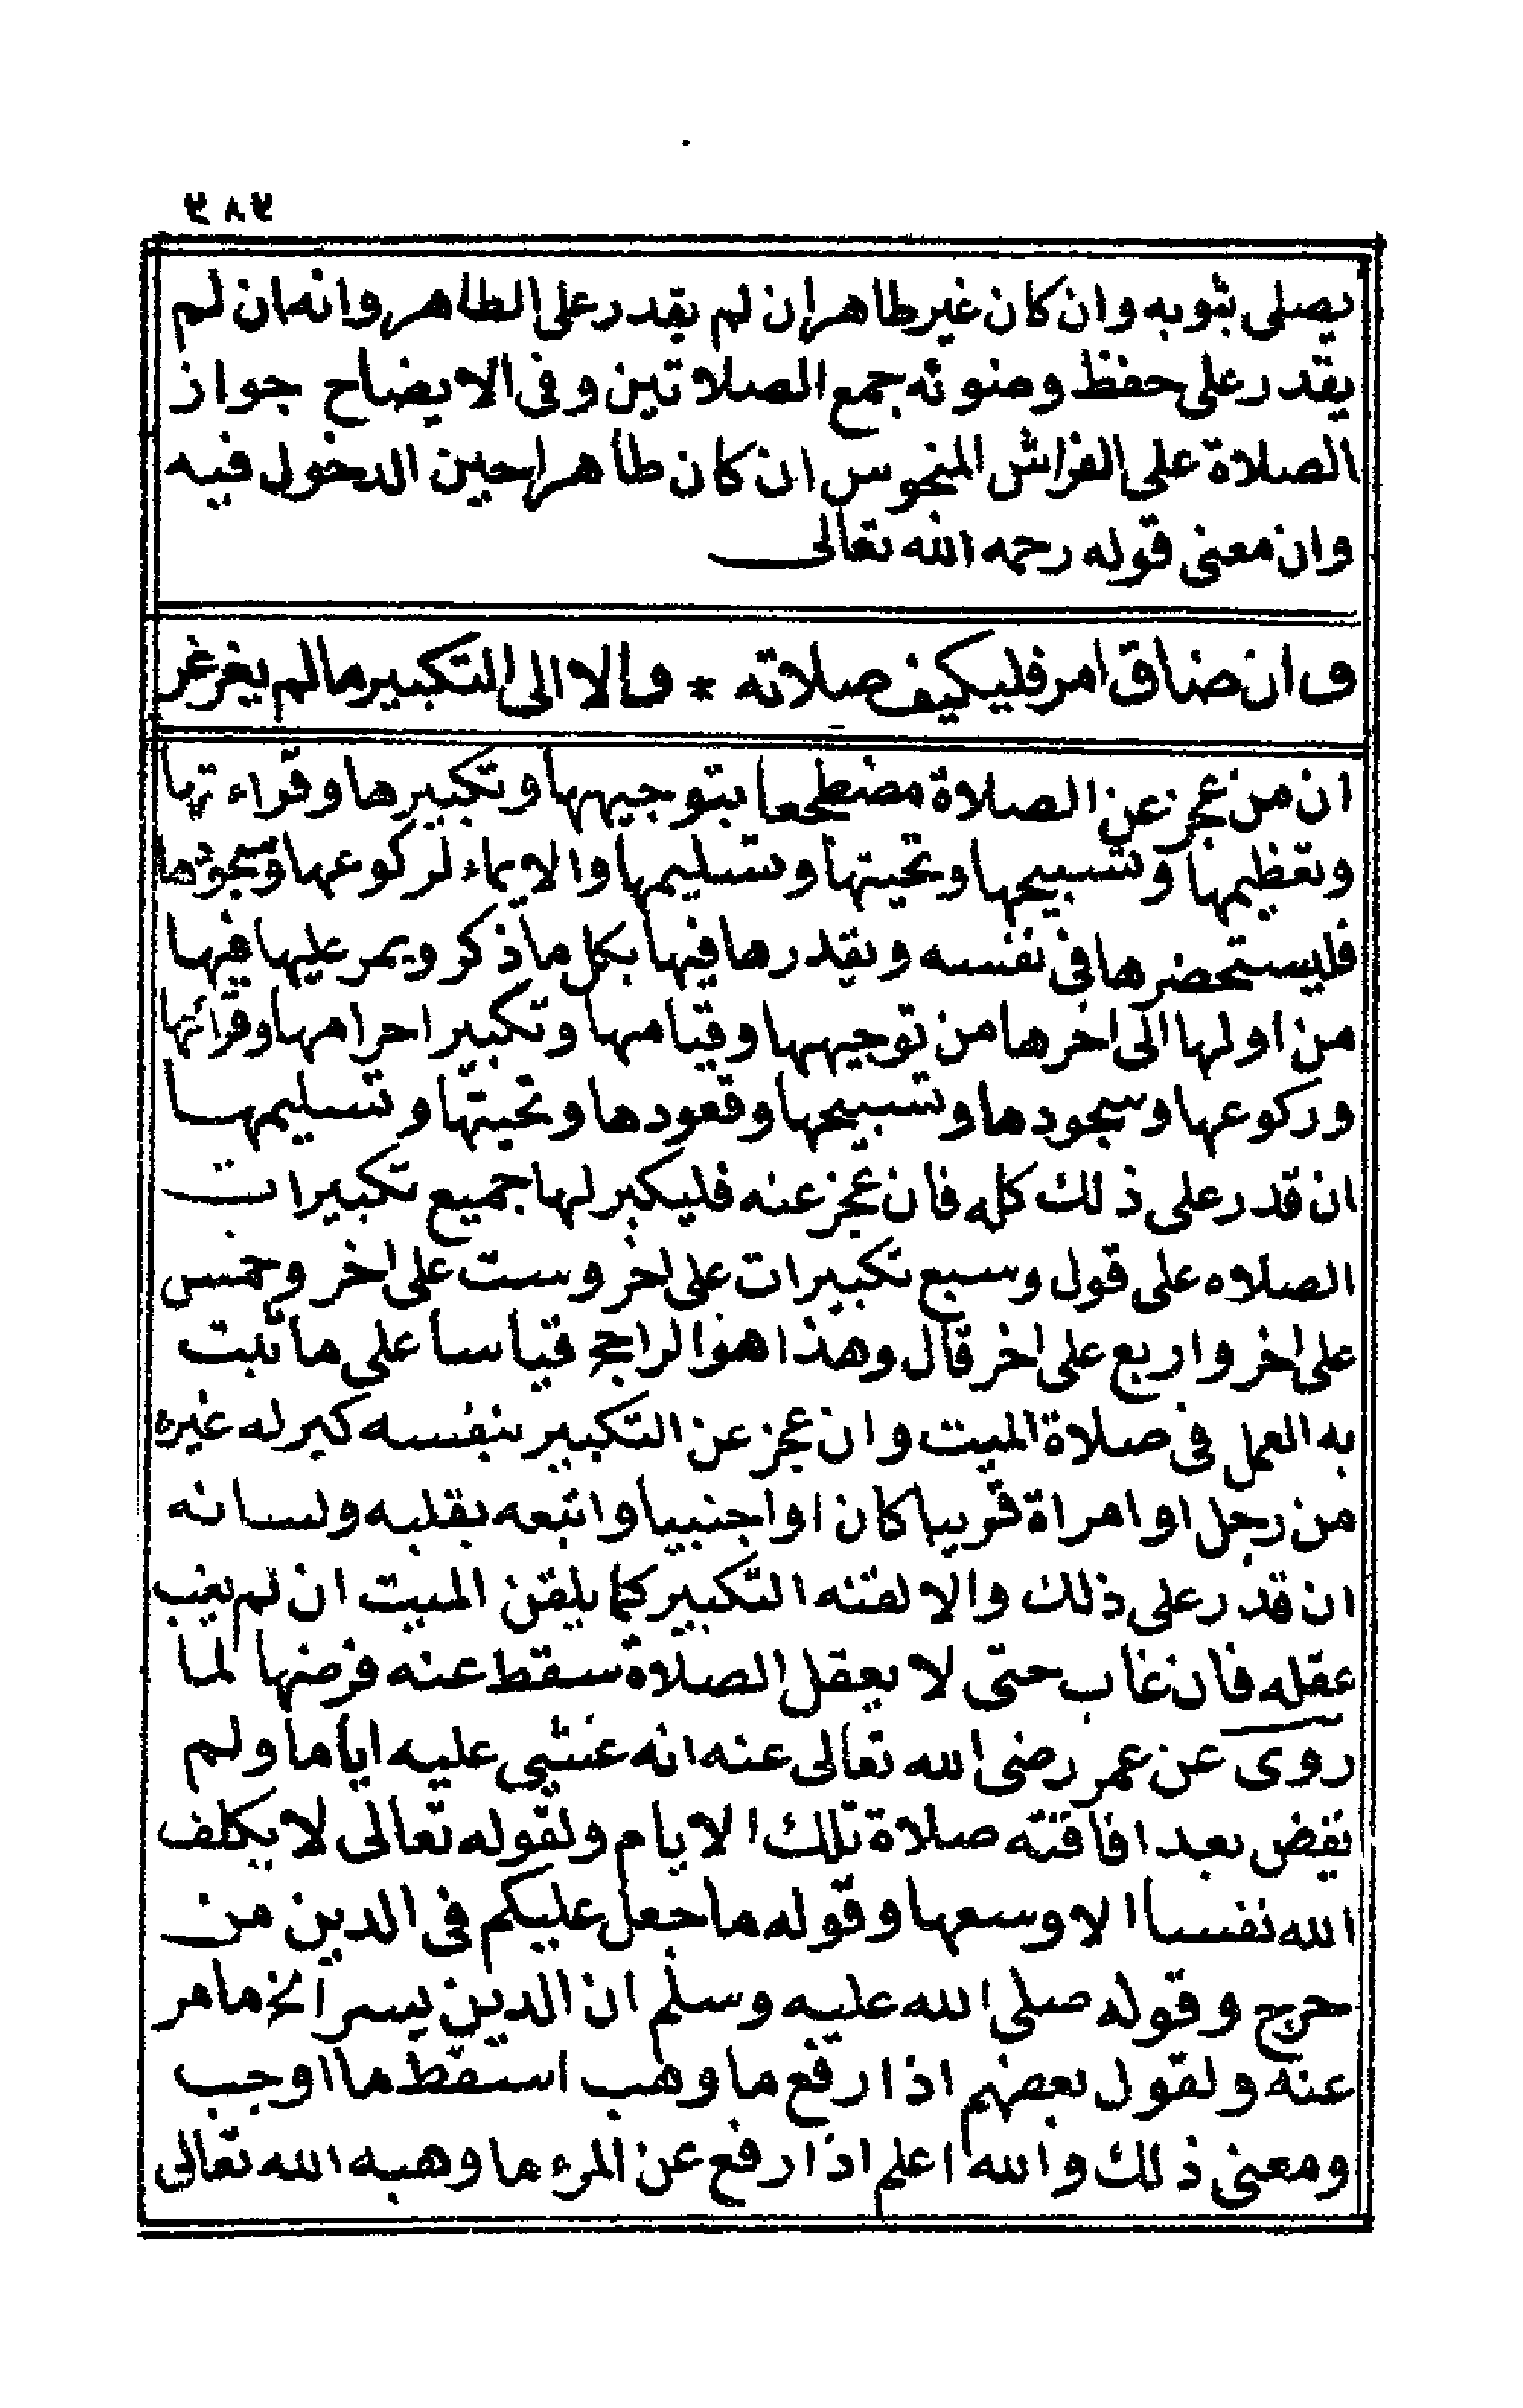 ٣٨٣
يصلى بثوبه وان كان غير طاهر ان لم يقدر على الطاهر وانه ان لم
يقدر على حفظ وضوئه جمع الصلاتين وفى الايضاح جواز
الصلاة على الفراش المنجوس ان كان طاهرا حين الدخول فيه
وان معنى قوله رحمه الله تعالى
وان ضاق امر فليكيف صلاته * والا الى التكبير ما لم يغرغر
ان من عجز عن الصلاة مضطجعا بتوجيهها وتكبيرها وقراءتها
وتعظيمها وتسبيحها وتحيتها وتسليمها والايماء لركوعها وسجودها
فليستحضرها فى نفسه ويقدرها فيها بكل ما ذكر ويمر عليها فيها
من اولها الى اخرها من توجيهها وقيامها وتكبير احرامها وقرائتها
وركوعها وسجودها وتسبيحها وقعودها وتحيتها وتسليمها
ان قدر على ذلك كله فان عجز عنه فليكبر لها جميع تكبيرات
الصلاه على قول وسبع تكبيرات على اخر وست على اخر وخمس
على اخر واربع على اخر قال وهذا هو الراجح قياسا على ما ثبت
به العمل فى صلاة الميت وان عجز عن التكبير بنفسه كبر له غيره
من رجل او امراة قريبا كان او اجنبيا واتبعه بقلبه ولسانه
ان قدر على ذلك والا لقنه التكبير كما يلقن الميت ان لم يغب
عقله فان غاب حتى لا يعقل الصلاة سقط عنه فرضها لما
روى عن عمر رضى الله تعالى عنه انه غشى عليه اياما ولم
يقض بعد افاقته صلاة تلك الايام ولقوله تعالى لا يكلف
الله نفسا الا وسعها وقوله ما جعل عليكم فى الدين من
حرج وقوله صلى الله عليه وسلم ان الدين يسر الخ ما مر
عنه ولقول بعضهم اذا رفع ما وهب اسقط ما اوجب
ومعنى ذلك والله اعلم اذا رفع عن المرء ما وهبه الله تعالى